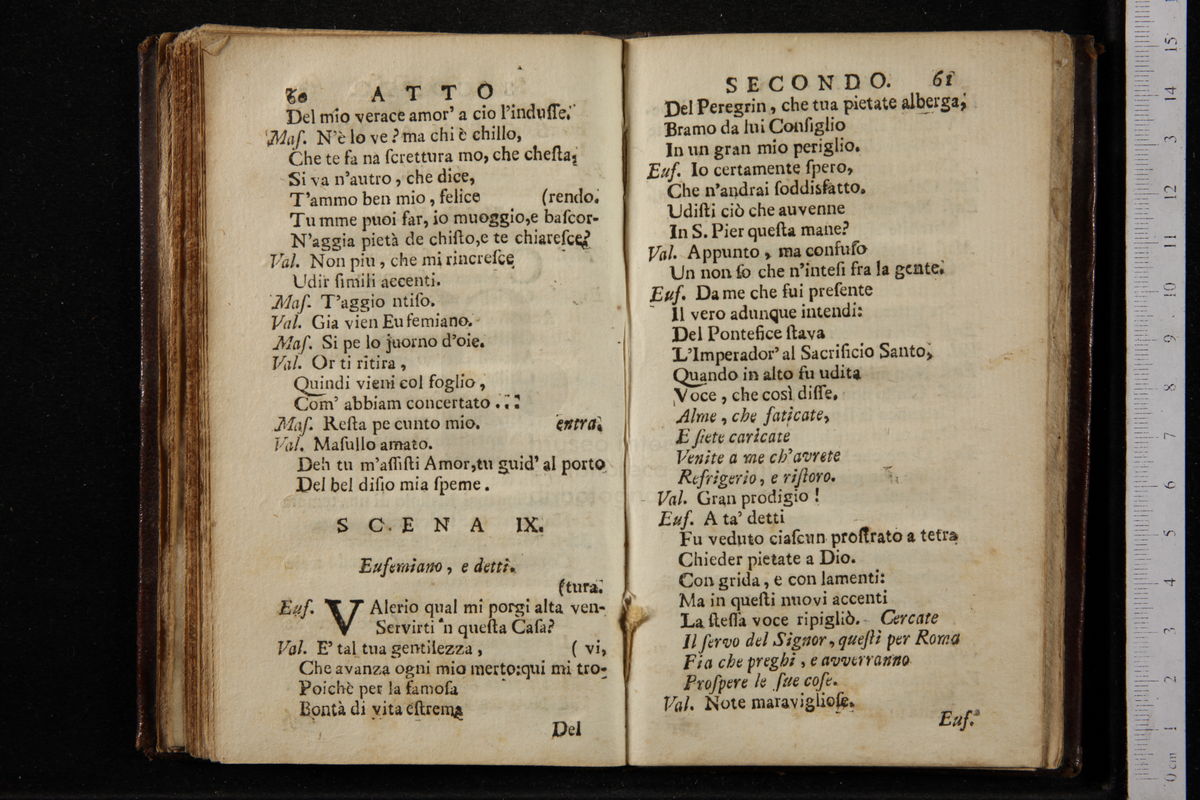 60 ATTO
Del mio verace amor' a cio l'induſſe.
Maſ. N'è lo ve? ma chi è chillo,
Che te fa na ſcrettura mo, che cheſta,
Si va n'autro, che dice,
T'ammo ben mio, felice (rendo.
Tu mme puoi far, io muoggio, e baſcor-
N'aggia pietà de chiſto, e te chiareſce?
Val. Non piu, che mi rincreſce
Udir ſimili accenti.
Maſ. T'aggio ntiſo.
Val. Gia vien Eufemiano.
Maſ. Si pe lo juorno d'oie.
Val. Or ti ritira,
Quindi vieni col foglio,
Com' abbiam concertato...
Maſ. Reſta pe cunto mio. entra.
Val. Maſullo amato.
Deh tu m'aſſiſti Amor, tu guid' al porto
Del bel diſio mia ſpeme.
SCENA IX.
Eufemiano, e detti.
(tura.
Euf. VAlerio qual mi porgi alta ven-
Servirti 'n queſta Caſa?
Val. E' tal tua gentilezza, ( vi,
Che avanza ogni mio merto: qui mi tro-
Poichè per la famoſa
Bontà di vita eſtrema
Del
SECONDO. 61
Del Peregrin, che tua pietate alberga,
Bramo da lui Conſiglio
In un gran mio periglio.
Euf. Io certamente ſpero,
Che n'andrai ſoddisfatto.
Udiſti ciò che auvenne
In S. Pier queſta mane?
Val. Appunto, ma confuſo
Un non ſo che n'inteſi fra la gente.
Euf. Da me che fui preſente
Il vero adunque intendi:
Del Pontefice ſtava
L'Imperador' al Sacrificio Santo,
Quando in alto fu udita
Voce, che così diſſe.
Alme, che faticate,
E ſiete caricate
Venite a me ch'avrete
Refrigerio, e riſtoro.
Val. Gran prodigio!
Euf. A ta' detti
Fu veduto ciaſcun proſtrato a terra
Chieder pietate a Dio.
Con grida, e con lamenti:
Ma in queſti nuovi accenti
La ſteſſa voce ripigliò. Cercate
Il ſervo del Signor, queſti per Roma
Fia che preghi, e avverranno
Proſpere le ſue coſe.
Val. Note maraviglioſe.
Euf.